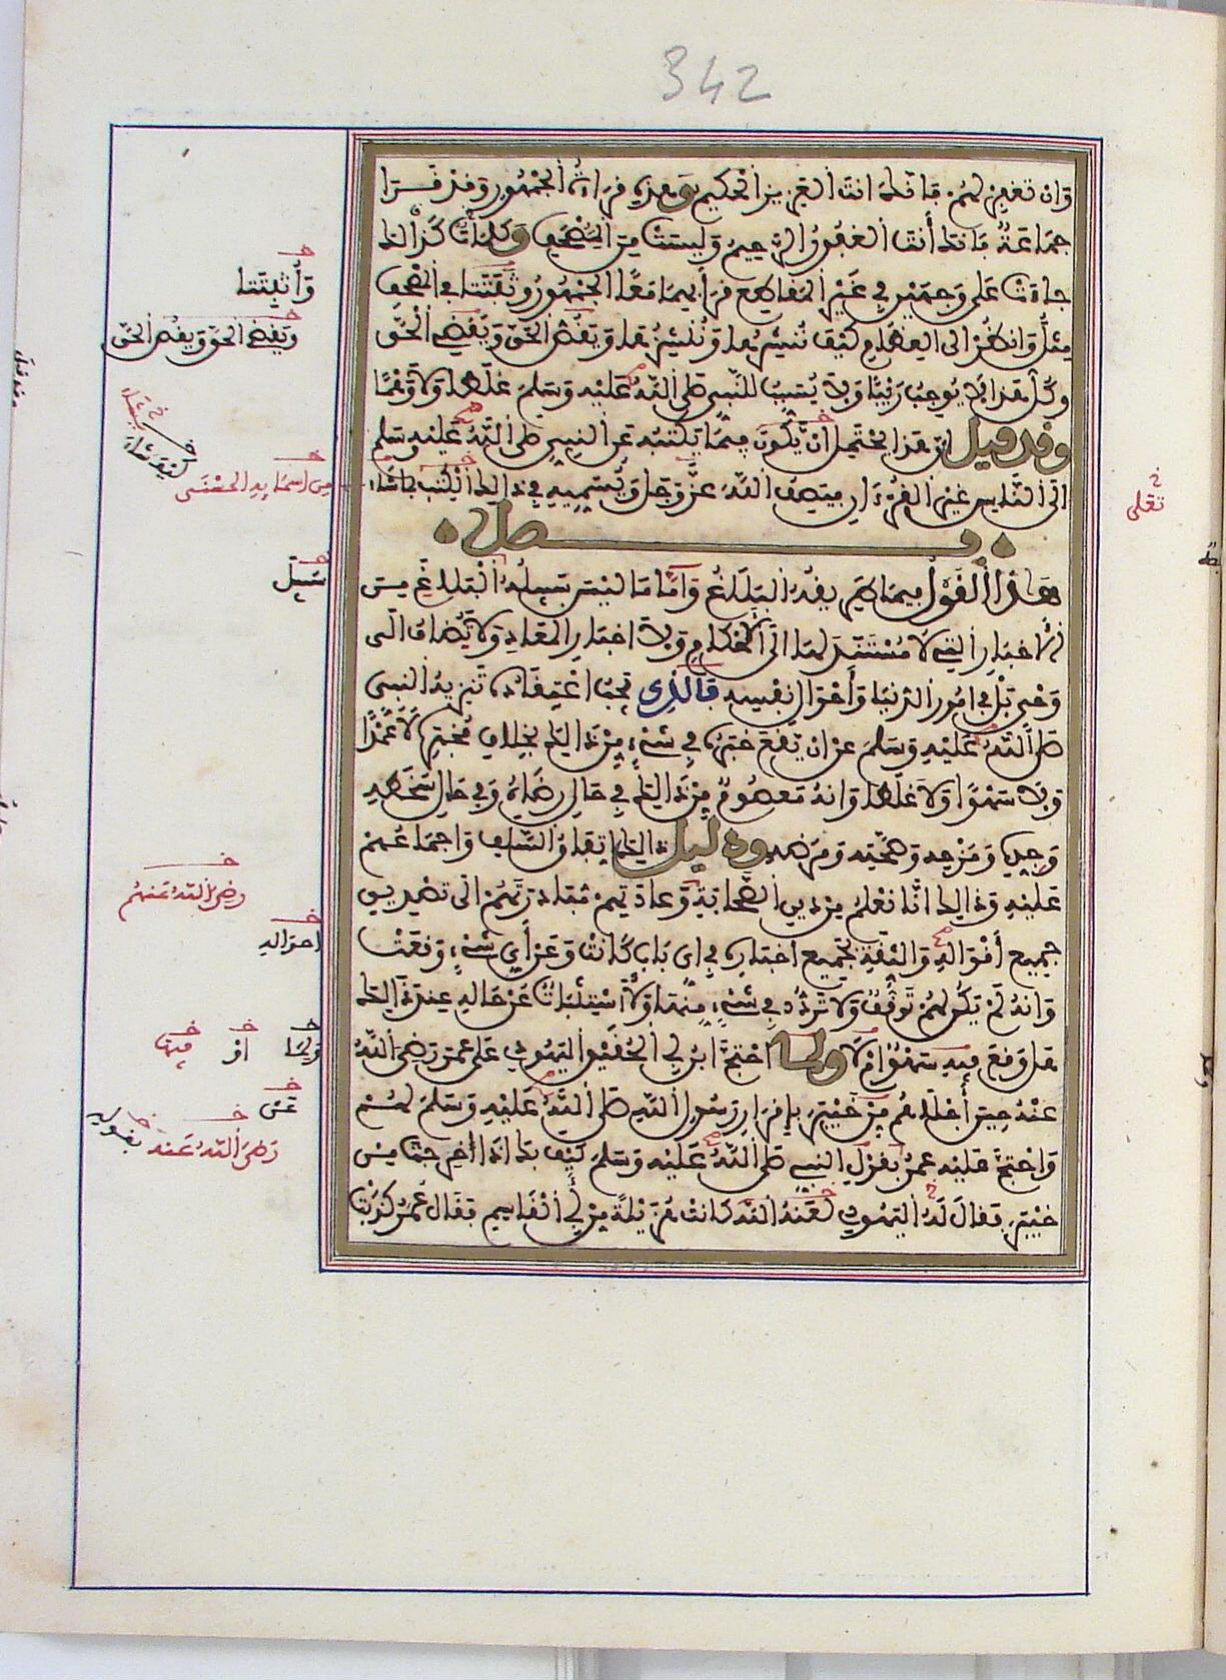 342
وَإن تغفر لهُمْ فَإنكَ أنتَ العَزيز الحَكيم وهذه قراءة الجُمْهُور وَقدْ قَرَأ
جمَاعَةٌ فَإنكَ أنْتَ الغَفُورُ الرَّحِيمُ وَليسَتْ مِنَ المُصْحَفِ وَكذَلِكَ كَلِمَاتٌ
جاءَتْ عَلى وَجهَيْنِ في غَيْرِ المَقاطِع قرَأ بهِمَا مَعًا الجُمْهُورُ وثبَتَتَا في المُصْحَفِ
مثلُ وَانظُرْ إلى العِظَامِ كيْفَ نُنشِرُهَا وَنُنشِزُهَا وَيَقْضِ الحَقَّ وَيَقُصُّ الحَقَّ
وَكُلُّ هَذَا لَا يُوجِبُ رَيْبًا وَلَا يُسَبِّبُ للنَّبِي صَلى اللَّهُ عَلَيْهِ وَسَلمَ غَلَطًا وَلَا وَهْمًا
وقد قيل إنّ هَذَا يَحْتَمِل أنْ يَّكُونَ فِيمَا يَكْتبُهُ عَنِ النبي صَلى اللَّهُ عَلَيْهِ وَسَلم
إلى النَّاسِ غَيْرَ القُرْءَانِ فيَصِفُ اللَّهَ عَزَّ وَجَلَّ وَيُسَمِّيهِ في ذَالِكَ الكِتَابِ كيْفَ شَاءَ
فصل
هَاذَا القَوْلُ فيمَا طَرِيقُهُ البَلَاغُ وَأمَّا مَا ليْسَ سَبِيلُهُ البَلَاغَ مِنَ
الأخبَارِ التي لَا مُسْتَنَدَ لهَا إلى الأحْكَامِ وَلَا أخبَارِ المَعَادِ وَلَا تُضَافُ إلَى
وَحْيٍ بَلْ في أمُورِ الدُّنيَا وَأحْوَالِ نفْسِهِ فَالذِي يَجِبُ اعْتِقَادُهُ تَنزِيهُ النبيِّ
صَلى اللَّهُ عَلَيْهِ وَسَلمَ عَنْ أنْ يَّقَعَ خَبَرُهُ في شَيْءٍ مِّنْ ذَالِكَ بخِلافِ مُخْبَرِهِ لَا عَمْدًا
وَلَا سَهْوًا وَلَا غَلَطًا وَأنهُ مَعصُومٌ مِنْ ذَالِكَ في حَالِ رِضَاهُ وَفي حَالِ سَخَطِهِ
وَجِدِّهِ وَمَزْحِهِ وَصِحَّتِهِ وَمَرَضِهِ ودليل ذَالِكَ اتفَاقُ السَّلَفِ وَإجمَاعُهُمْ
عَلَيْهِ وَذَالِكَ أنَّا نَعْلَمُ مِنْ دِينِ الصَّحَابَةِ وَعَادَتِهِمْ مُبَادَرَتَهُمْ إلى تصْدِيقِ
جمِيع أقْوَالِهِ وَالثِّقَةِ بجَمِيعِ أخبَارِهِ في أيِّ بَابٍ كَانَتْ وَعَنْ أيِّ شَيْءٍ وَقعَتْ
وَأنهُ لَمْ يَكُنْ لهُمْ تَوَقُّفٌ وَلَا تَرَدُّدٌ في شَيْءٍ مِّنْهَا وَلَا اسْتِثبَاتٌ عَنْ حَالِهِ عِندَ ذَالِكَ
هَلْ وَقعَ فِيهِ سَهْوٌ أمْ لَا ولما احْتَجَّ ابنُ أبي الحُقَيْقِ اليَهُودِيُّ عَلى عمَرَ رَضِيَ اللَّهُ
عَنْهُ حِينَ أجْلَاهُم مِنْ خَيْبَرَ بإقرَارِ رَسُولِ اللَّهِ صَلى اللَّهُ عَلَيْهِ وَسَلمَ لهُمْ
وَاحْتجَّ عَلَيْهِ عمَرُ بقَوْلِ النبي صَلى اللَّهُ عَلَيْهِ وَسَلمَ كَيْفَ بكَ إذَا أُخْرِجْتَ مِنْ
خَيْبَرَ فقَالَ لَهُ اليَهُودِي لعَنَهُ اللَّهُ كَانَتْ هُزَيْلَةً مِّنْ أبي القَاسِمِ فقَالَ عُمَرُ كَذَبْتَ
وَأُثبِتَتَا
وَيَقْضِ الحَقَّ وَيَقُصُّ الحَقَّ
مِن أسمَائِهِ الحُسْنَى
تعَلى
سَبِيلُ
رَضِيَ اللَّهُ عَنهُمْ
أحوَالِهِ
وَلِمَا أوْ فِيهَا
عَن
بقَوْلِهِ
رَضِيَ اللَّهُ عَنهُ